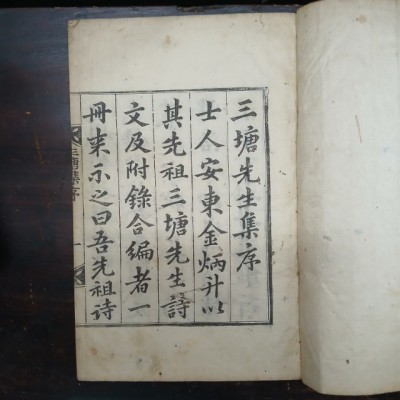 三塘先生集序
士人安東金炳升以
其先祖三塘先生詩
文及附錄合編者一
冊来示之曰吾先祖詩
三塘集序
一